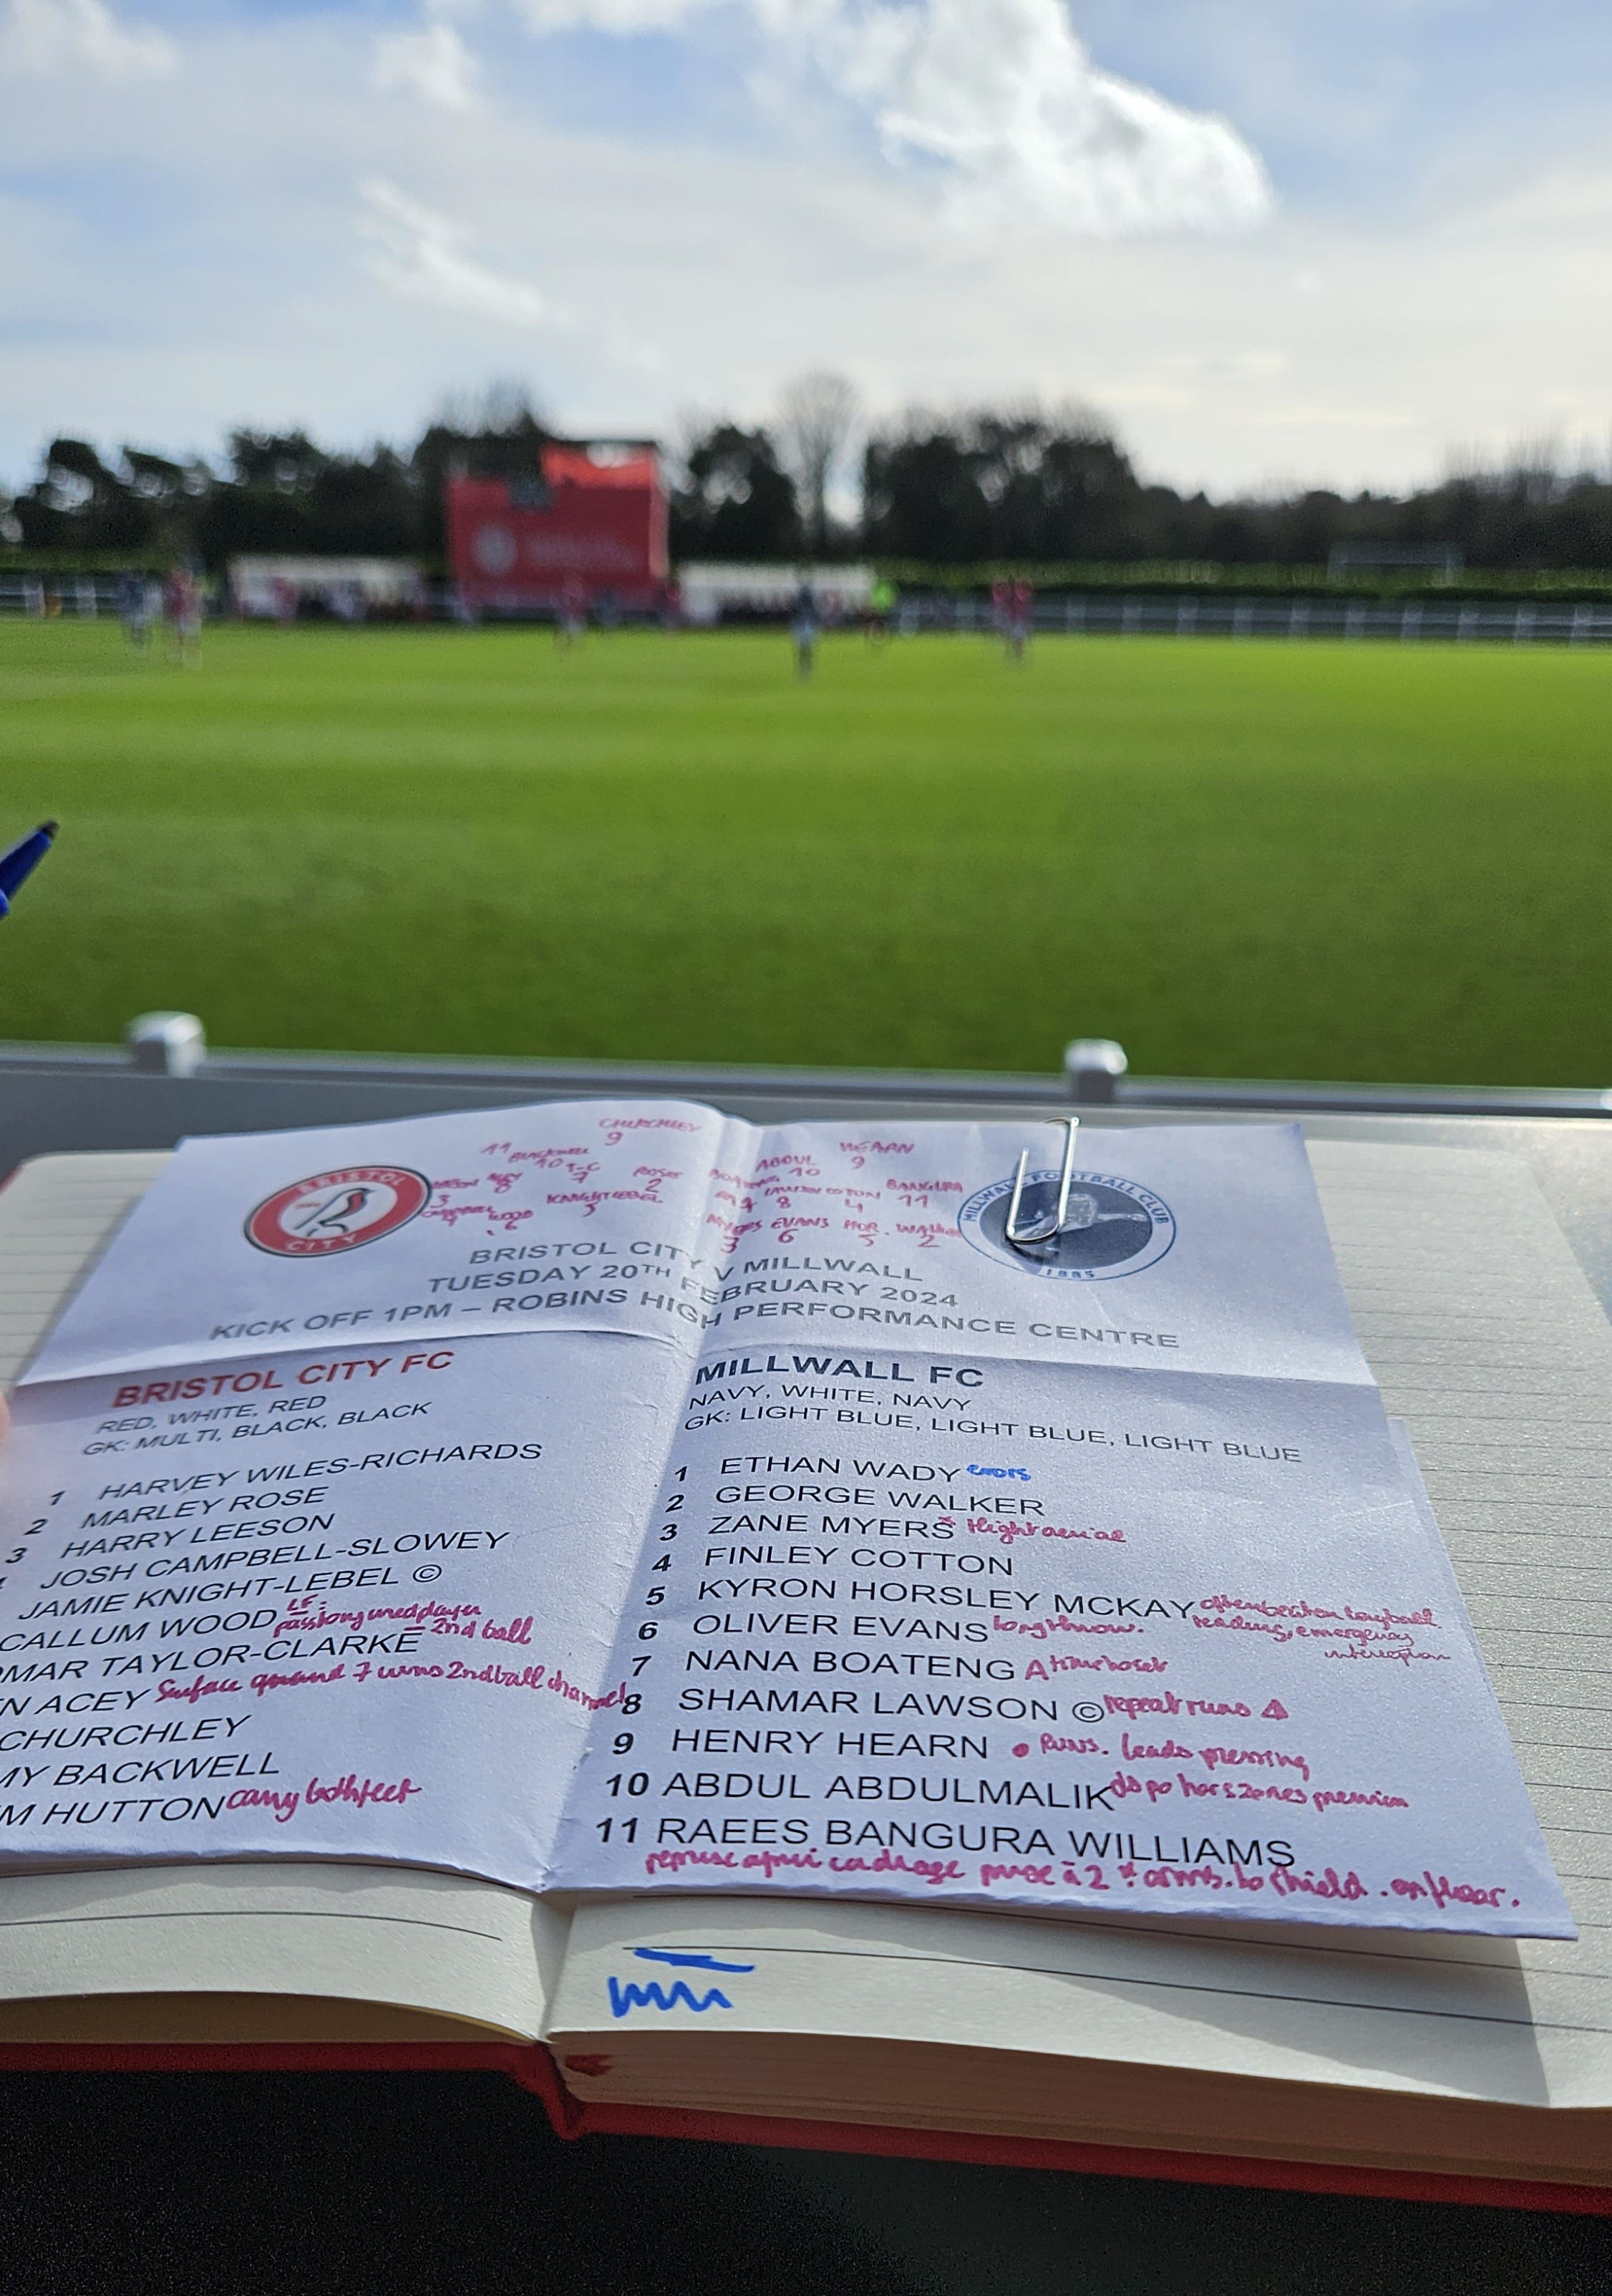 CHURCHLEY
9
11 BACKWELL
10 T-C
7
8
ROSE
2
3
KNIGHT LEBEL
5
6
HEARN
9
ABDUL
10
BANGURA
11
LAWSON COTTON
8 4
MYERS EVANS HOR. WALKER
3 6 5 2
BRISTOL
CITY
MILLWALL FOOTBALL CLUB
1885
BRISTOL CITY V MILLWALL
TUESDAY 20TH FEBRUARY 2024
KICK OFF 1PM – ROBINS HIGH PERFORMANCE CENTRE
BRISTOL CITY FC
RED, WHITE, RED
GK: MULTI, BLACK, BLACK
1 HARVEY WILES-RICHARDS
2 MARLEY ROSE
3 HARRY LEESON
JOSH CAMPBELL-SLOWEY
JAMIE KNIGHT-LEBEL ©
CALLUM WOOD LF:
pass long uned player
MAR TAYLOR-CLARKE 2nd ball
N ACEY Surface quand 7 wins 2nd ball channel
CHURCHLEY
MY BACKWELL
M HUTTON carry both feet
MILLWALL FC
NAVY, WHITE, NAVY
GK: LIGHT BLUE, LIGHT BLUE, LIGHT BLUE
1 ETHAN WADY errors
2 GEORGE WALKER
3 ZANE MYERS * Hight aerial
4 FINLEY COTTON
5 KYRON HORSLEY MCKAY often beaten long ball
reading, emergency
interception
6 OLIVER EVANS long throw.
7 NANA BOATENG
8 SHAMAR LAWSON © repeat runs
9 HENRY HEARN • Runs. leads pressing
10 ABDUL ABDULMALIK dspo hors zones pression
11 RAEES BANGURA WILLIAMS
cadrage prise à 2 * arms. to shield. on floor.